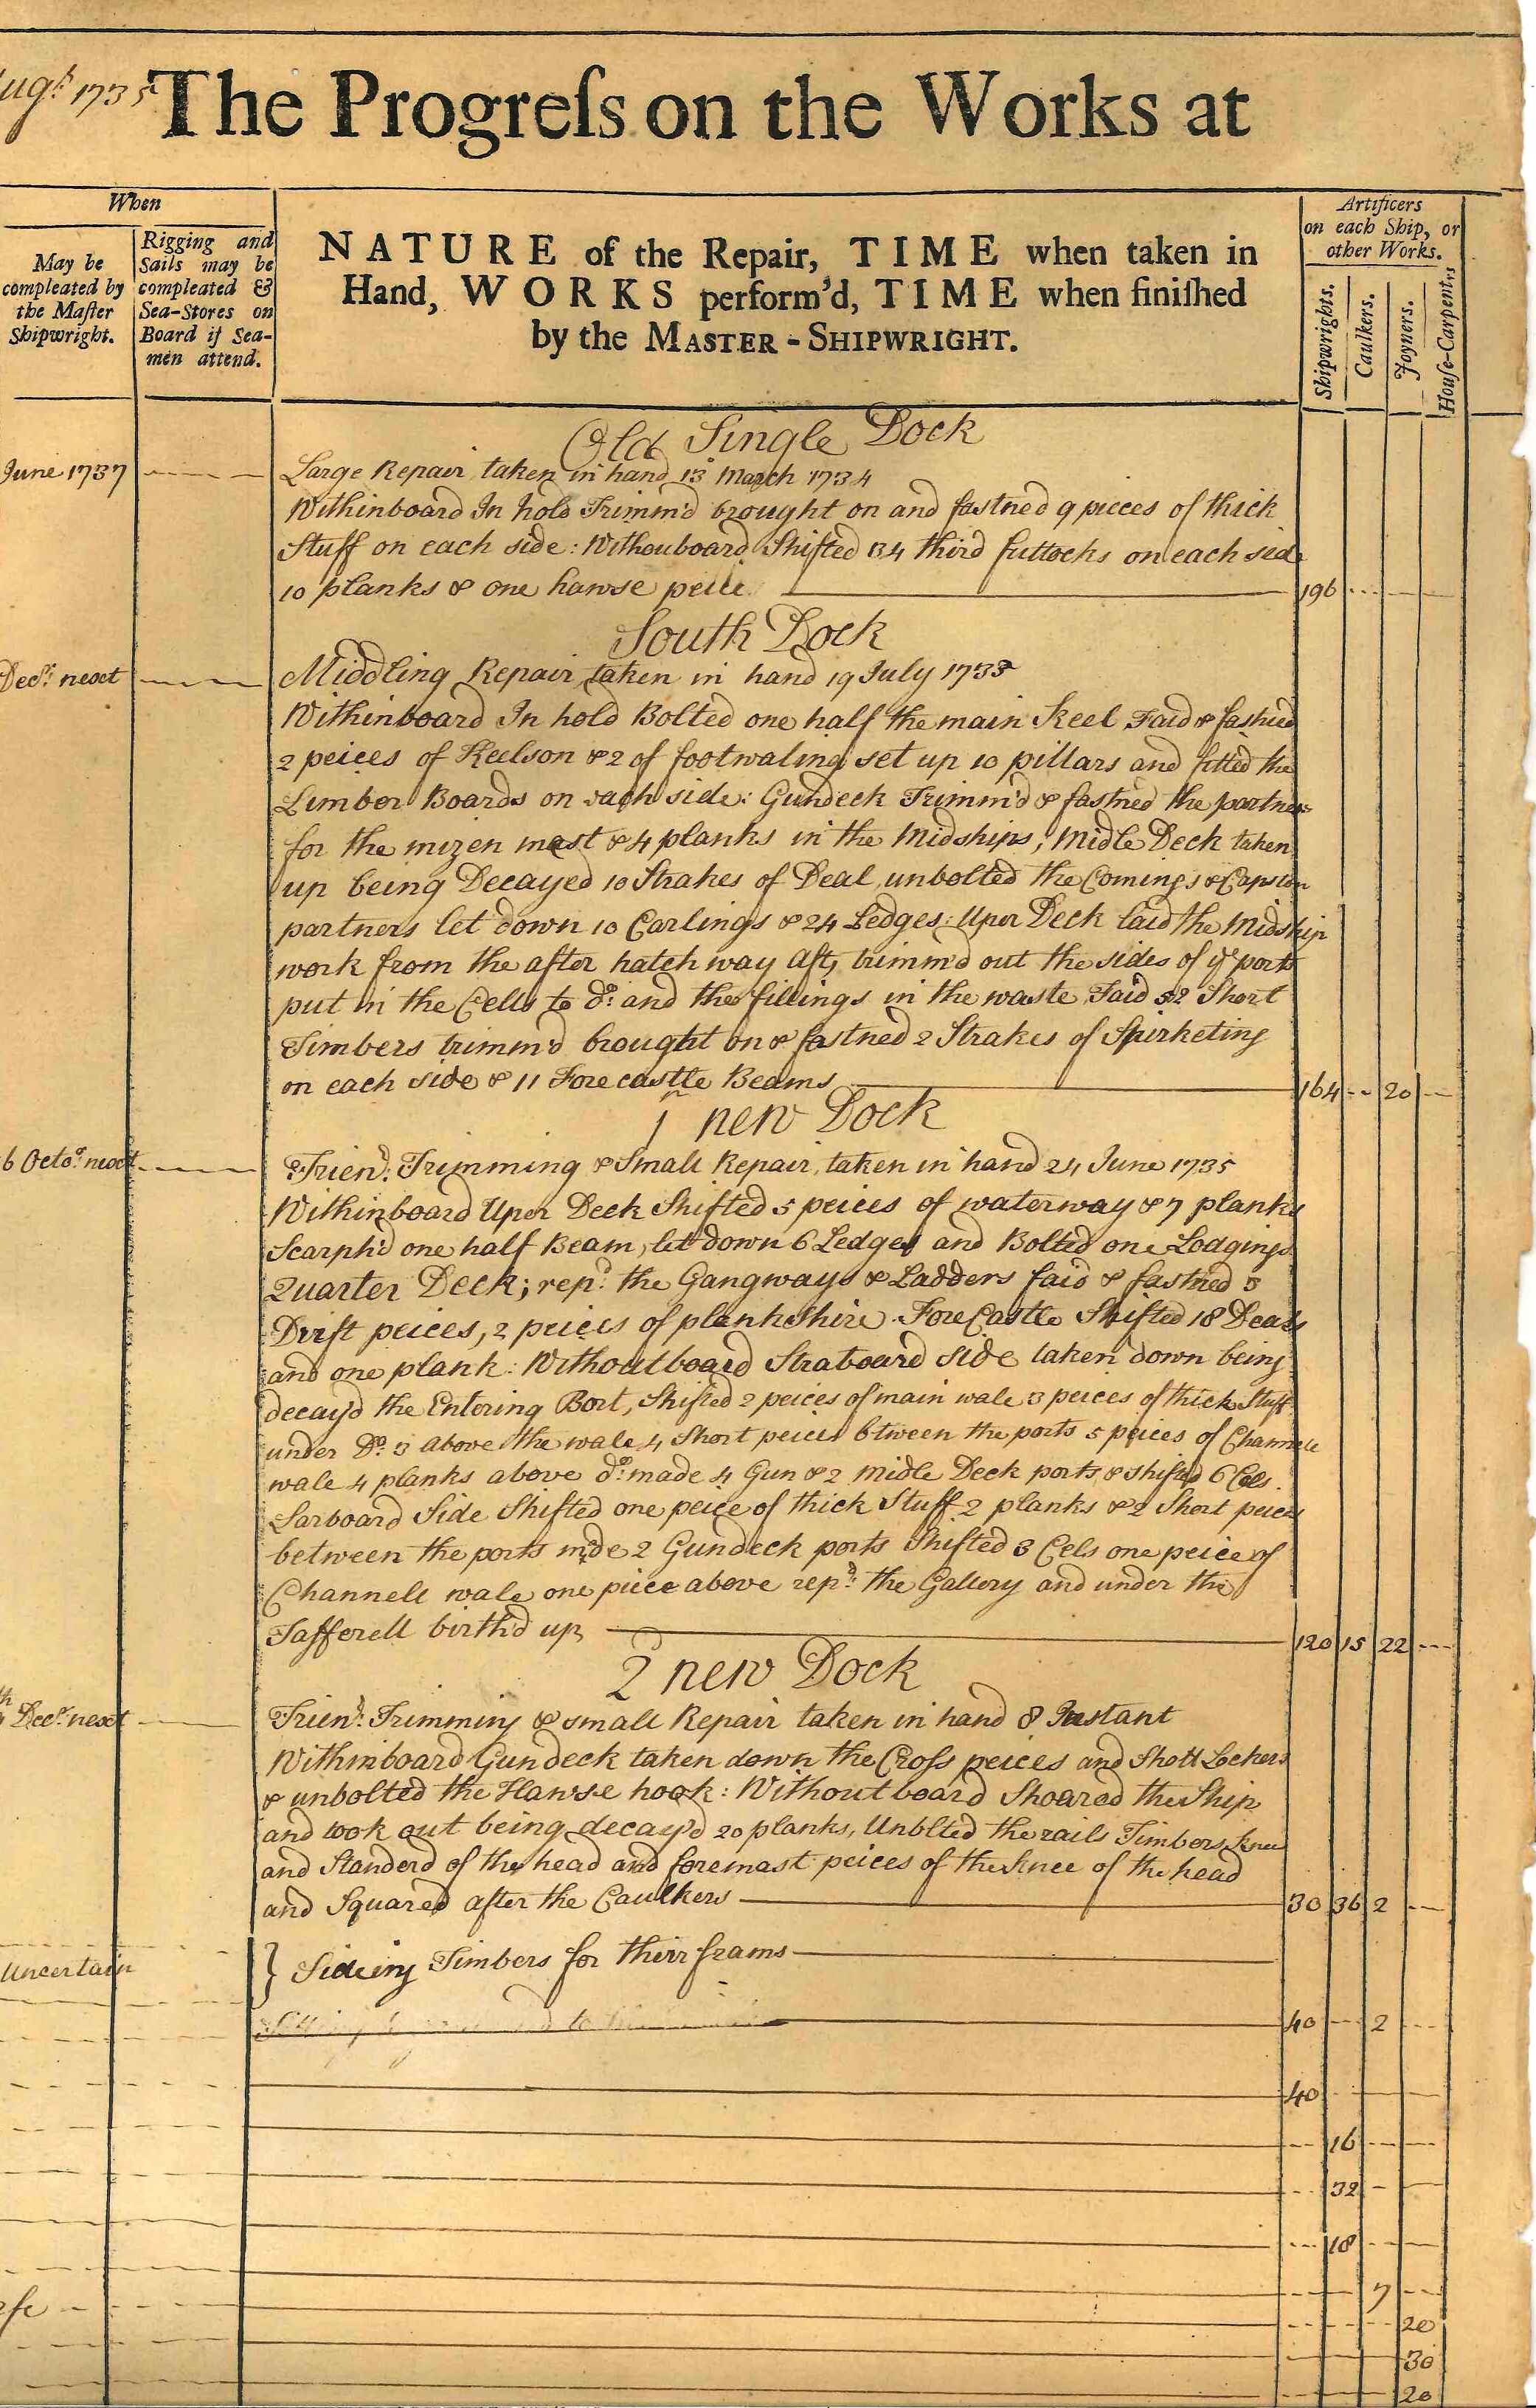 Augt. 1735
The Progreſs on the Works at
When
May be compleated by the Maſter Shipwright.
Rigging and Sails may be compleated & Sea-Stores on Board if Sea-men attend.
NATURE of the Repair, TIME when taken in
Hand, WORKS perform'd, TIME when finiſhed
by the MASTER-SHIPWRIGHT.
Artificers
on each Ship, or
other Works.
Shipwrights.
Caulkers.
Joyners.
Houſe-Carpenters
Old Single Dock
June 1737
Large Repair taken in hand 13 March 1734
Withinboard In hold Trimm'd brought on and fastned 9 pieces of thick
Stuff on each side: Withouboard Shifted 34 third futtocks on each side
10 planks & one hawse peice 196
South Dock
Decr. next
Middling Repair taken in hand 19 July 1735
Withinboard In hold Bolted one half the main Keel Faid & fastned
2 peices of Keelson & 2 of footwaling set up 10 pillars and fitted the
Limber Boards on each side: Gundeck Trimm'd & fastned the partners
for the mizen mast & 4 planks in the Midships; Midle Deck taken
up being Decayed 10 Strakes of Deal unbolted the Comings & Capston
partners let down 10 Carlings & 24 Ledges: Uper Deck laid the Midship
work from the after hatch way aft, trimm'd out the sides of ye ports
put in the Cells to Do: and the fillings in the waste Faid 52 Short
Timbers trimm'd brought on & fastned 2 Strakes of Spirketing
on each side & 11 Forecastle Beams 164 20
1 new Dock
6 Octor. next
Triend: Trimming & Small Repair, taken in hand 24 June 1735
Withinboard Uper Deck Shifted 5 peices of waterway & 7 planks
Scarph'd one half Beam, let down 6 Ledges and Bolted one Lodging
Quarter Deck; repd. the Gangways & Ladders faid & fastned 3
Drift peices, 2 peices of plankshire. ForeCastle Shifted 18 Deals
and one plank: Withoutboard Straboard side taken down being
decay'd the Entering Port, Shifted 2 peices of main wale 3 peices of thick Stuff
under Do. 3 above the wale 4 Short peices btween the ports 5 peices of Channele
wale 4 planks above do: made 4 Gun & 2 midle Deck ports & shifted 6 Cels.
Larboard Side Shifted one peice of thick Stuff 2 planks & 2 Short peices
between the ports made 2 Gundeck ports Shifted 3 Cels one peice of
Channell wale one piece above repd: the Gallery and under the
Tafferell birth'd up, 120 15 22
2 new Dock
th Decr. next
Triend: Trimming & small Repair taken in hand 8 Instant
Withinboard Gundeck taken down the Croſs peices and Shott Lockers
& unbolted the Hawse hook: Without board Shoared the Ship
and took out being decay'd 20 planks, Unblted the rails Timbers knee
and Standerd of the head and foremast peices of the knee of the head
and Squared after the Caulkers 30 36 2
Uncertain
Sideing Timbers for their frams
40 2
40
16
32
18
7
20
30
20